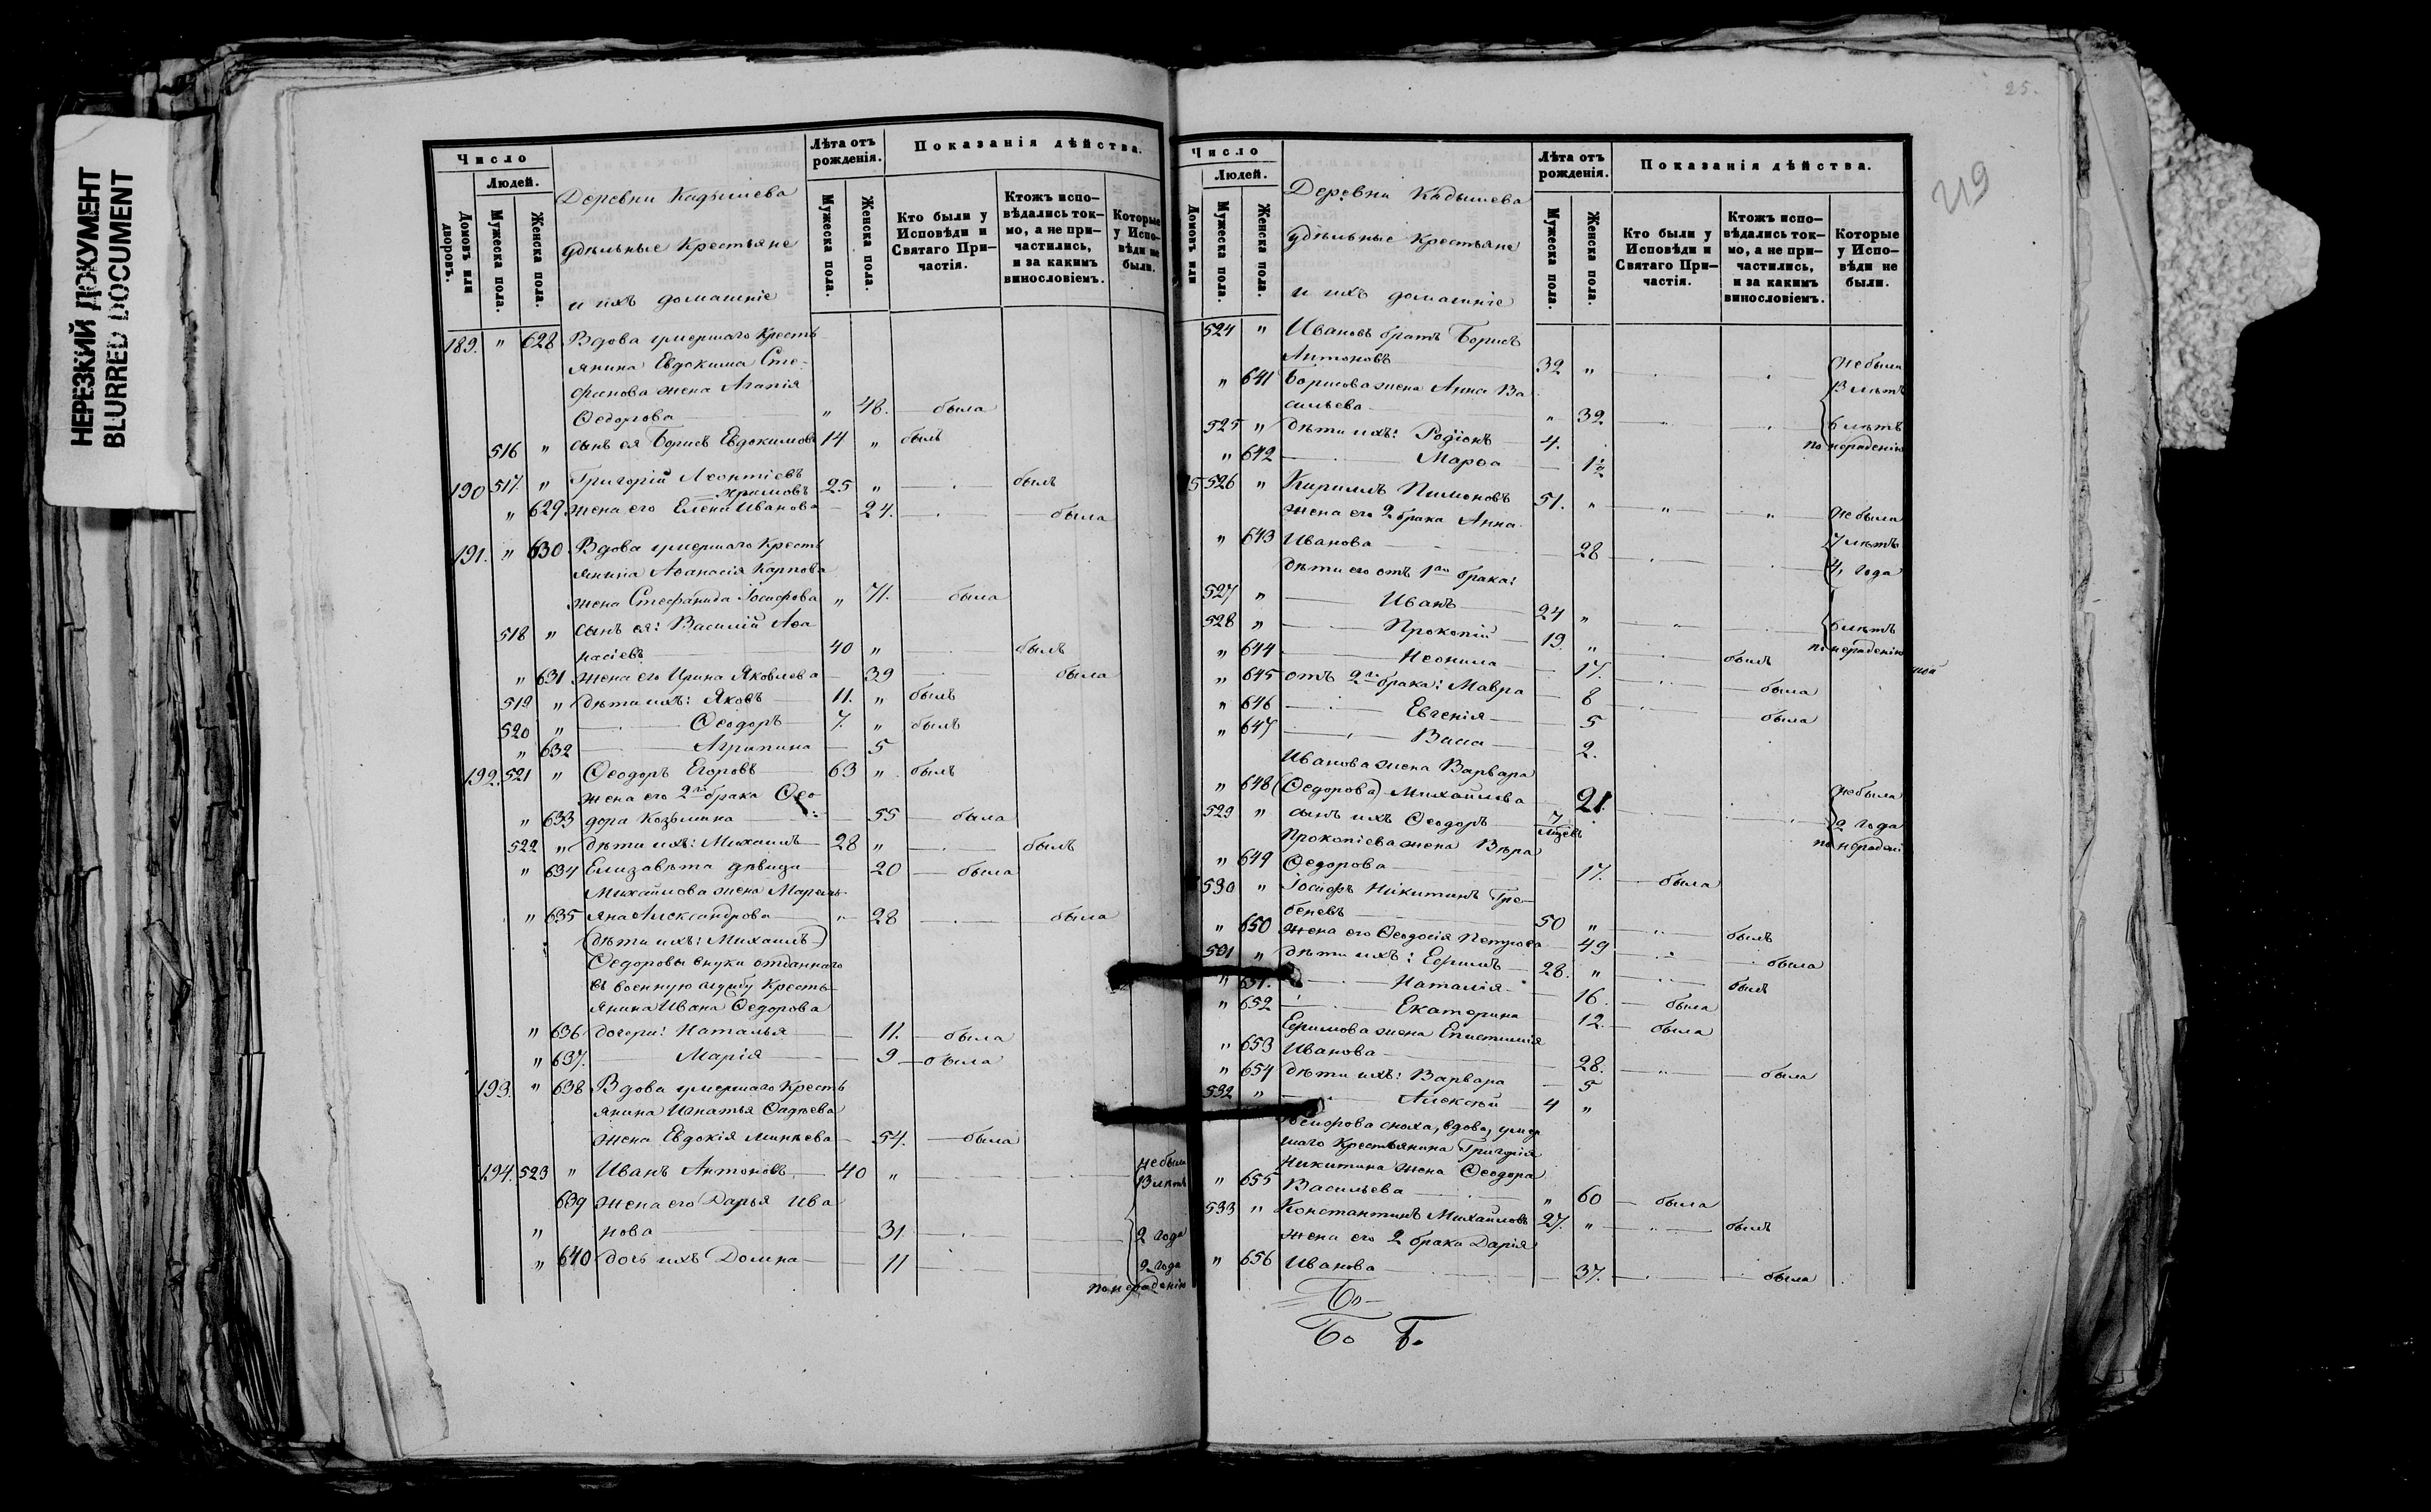 НЕРЕЗКИЙ ДОКУМЕНТ
BLURRED DOCUMENT
Число
Людей.
Домовъ или дворовъ.
Мужеска пола.
Женска пола.
Деревни Кадышева
удѣльные Крестьяне
и ихъ домашніе
Лѣта отъ рожденія.
Мужеска пола.
Женска пола.
Показанія дѣйства.
Кто были у Исповѣди и Святаго Причастія.
Ктожъ исповѣдались токмо, а не причастились, и за какимъ винословіемъ.
Которые у Исповѣди не были.
189. " 628 Вдова умершаго Кресть
янина Евдокима Сте-
фанова жена Агапія
Ѳедорова " 48. была
516 " сынъ ея Борисъ Евдокимовъ 14 " былъ
190 517 " Григорій Леонтіевъ
25 " былъ
" 629 жена его Елена Иванова 24. была
191. " 630 Вдова умершаго Кресть
янина Аѳанасія Карпова
жена Стефанида Іосифова " 71. была
518 " сынъ ея: Василій Аѳа
насіевъ 40 " былъ
" 631 жена его Ирина Яковлева 39 была
519 " дѣти ихъ: Яковъ 11. " былъ
520 " Ѳеодоръ 7. " былъ
" 632 Агрипина 5
192. 521 " Ѳеодоръ Егоровъ 63 " былъ
жена его 2го брака Ѳео-
" 633 дора Козьмина 55 была
522 " дѣти ихъ: Михаилъ 28 " былъ
" 634 Елизавѣта дѣвица 20 была
Михайлова жена Марем-
" 635 яна Александрова " 28 была
(дѣти ихъ: Михаилъ)
Ѳедоровы внуки отданнаго
въ военную службу Кресть-
янина Ивана Ѳедорова
" 636 дочери: Наталья 11. была
" 637. Марія 9 была
193. " 638 Вдова умершаго Кресть
янина Игнатья Ѳадѣева
жена Евдокія Минѣева 54. была
194. 523 " Иванъ Антоновъ 40 " не былъ
13 лѣтъ
639 жена его Дарья Ива
" нова 31 2 года
" 640 дочь ихъ Домна 11 2 года
по нерадѣнію
25.
219
Число
Людей.
Домовъ или
Мужеска пола.
Женска пола.
Деревни Кадышева
удѣльные Крестьяне
и ихъ домашніе
Лѣта отъ рожденія.
Мужеска пола.
Женска пола.
Показанія дѣйства.
Кто были у Исповѣди и Святаго Причастія.
Ктожъ исповѣдались токмо, а не причастились, и за какимъ винословіемъ.
Которые у Исповѣди не были.
524 " Ивановъ братъ Борисъ
Антоновъ 32 " не были
" 641 Борисова жена Анна Ва 13 лѣтъ
сильева " 32 6 лѣтъ
525 " дѣти ихъ: Родіонъ 4. по нерадѣнію
" 642 Марѳа 1½
5 526 " Кириллъ Пимоновъ 51. " не были
жена его 2 брака Анна
" 643 Иванова 28 7 лѣтъ
4 года
дѣти его отъ 1го брака:
527 " Иванъ 24 " 6 лѣтъ
528 " Прокопій 19. " по нерадѣнію
былъ
" 644 Неонила 17. была
" 645 отъ 2го брака: Мавра 8 была
" 646 Евгенія 5
" 647 Васса 2.
Иванова жена Варвара
" 648 (Ѳедорова) Михайлова 21. не была
2 года
529 " сынъ ихъ Ѳеодоръ 7 мѣсяцевъ по нерадѣні
Прокопіева жена Вѣра
" 649 Ѳедорова 17. была
530 " Іосифъ Никитинъ Гре-
беневъ 50 " былъ
" 650 жена его Ѳеодосія Петрова 49 была
531 " дѣти ихъ: Ефимъ 28. " былъ
" 651. Наталія 16. была
" 652 Екатерина 12. была
Ефимова жена Епистимія
" 653 Иванова 28. была
" 654 дѣти ихъ: Варвара 5
532 " Алексѣй 4 "
Іосифова сноха, вдова, умер
шаго Крестьянина Григорія
Никитина жена Ѳеодора
" 655 Васильева " 60 была
533 " Константинъ Михайловъ 27. " былъ
жена его 2 брака Дарія
" 656 Иванова 37. была